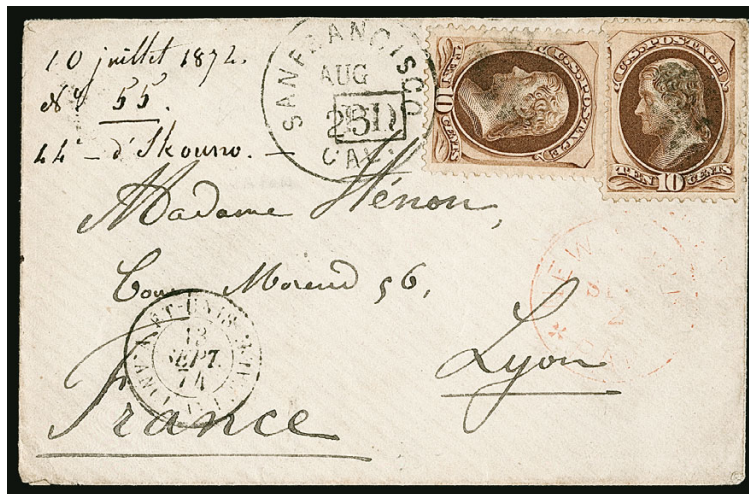 10 juillet 1874.
Nº 55.
44e - d'Skouno. -
SAN FRANCISCO
AUG
CAL.
PD
U.S. POSTAGE
TEN 10 CENTS
U.S. POSTAGE
TEN 10 CENTS
Madame Hénon,
Cours Morand 56,
NEW
Lyon
13
SEPT.
74
France